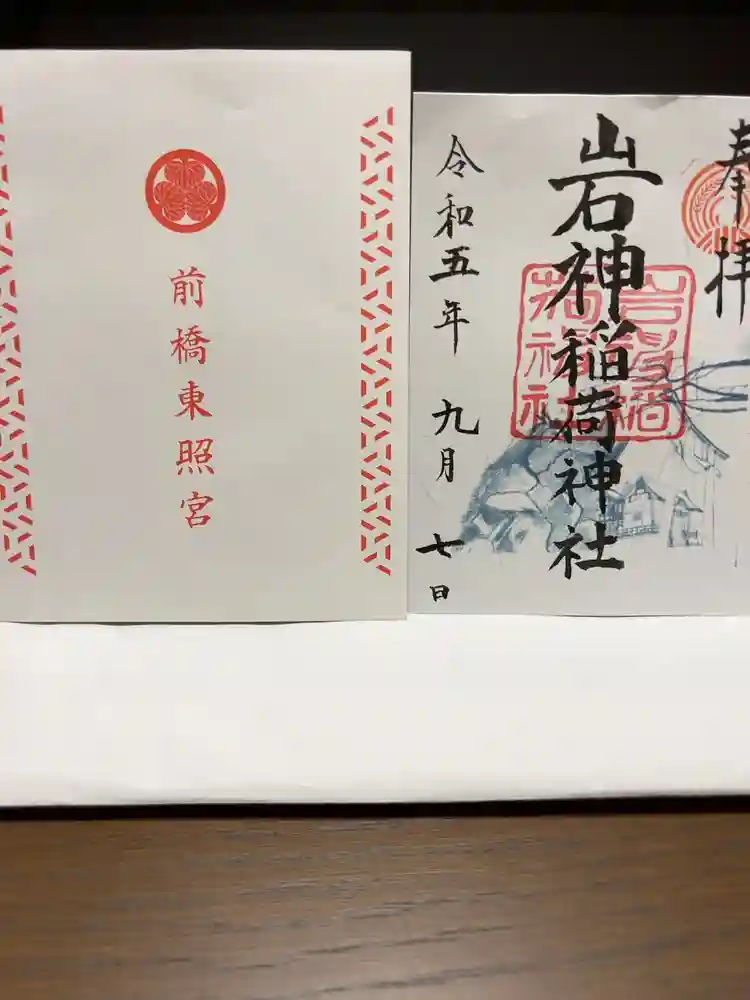 前橋東照宮
奉拝
岩神稲荷神社
岩神稲
荷神社
令和五年 九月 七日